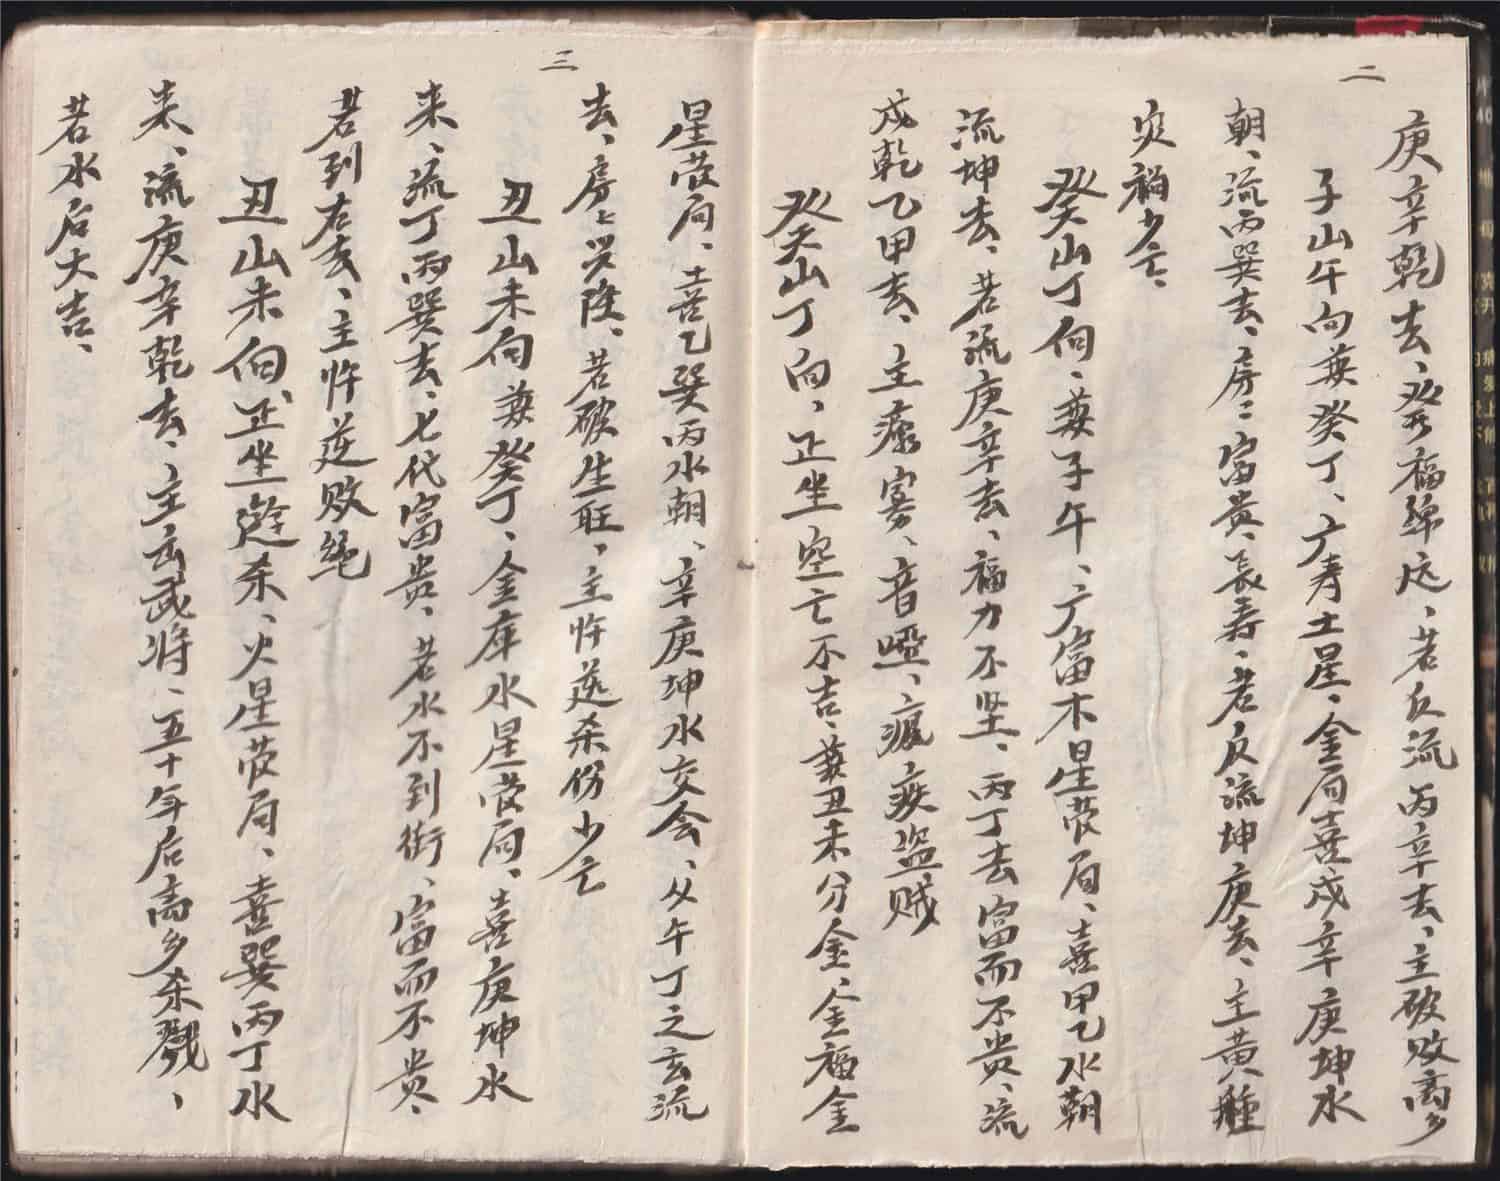 二
庚辛乾去、发福绵远、若反流丙辛去、主破败离乡
子山午向兼癸丁、广寿土星、金局喜戌辛庚坤水
朝、流丙巽去、房二富贵、长寿、若反流坤庚去、主黄肿
灾祸少亡、
癸山丁向、兼子午、广富木星营局、喜甲乙水朝
流坤去、若流庚辛去、福力不坚、丙丁去富而不贵、流
戌乾乙甲去、主痨寡、音哑、痕疾盗贼
癸山丁向、正坐空亡不吉、兼丑未分金、金福金
三
星营局、喜乙巽丙水朝、辛庚坤水交会、从午丁之玄流
去、房房兴隆、若破生旺、主忤逆杀伤少亡
丑山未向兼癸丁、金库水星营局、喜庚坤水
来、流丁丙巽去、七代富贵、若水不到街、富而不贵、
若到右去、主忤逆败绝
丑山未向、正坐阴杀、火星营局、喜巽丙丁水
来、流庚辛乾去、主玄武将、五十年后离乡杀戮、
若水后大吉、